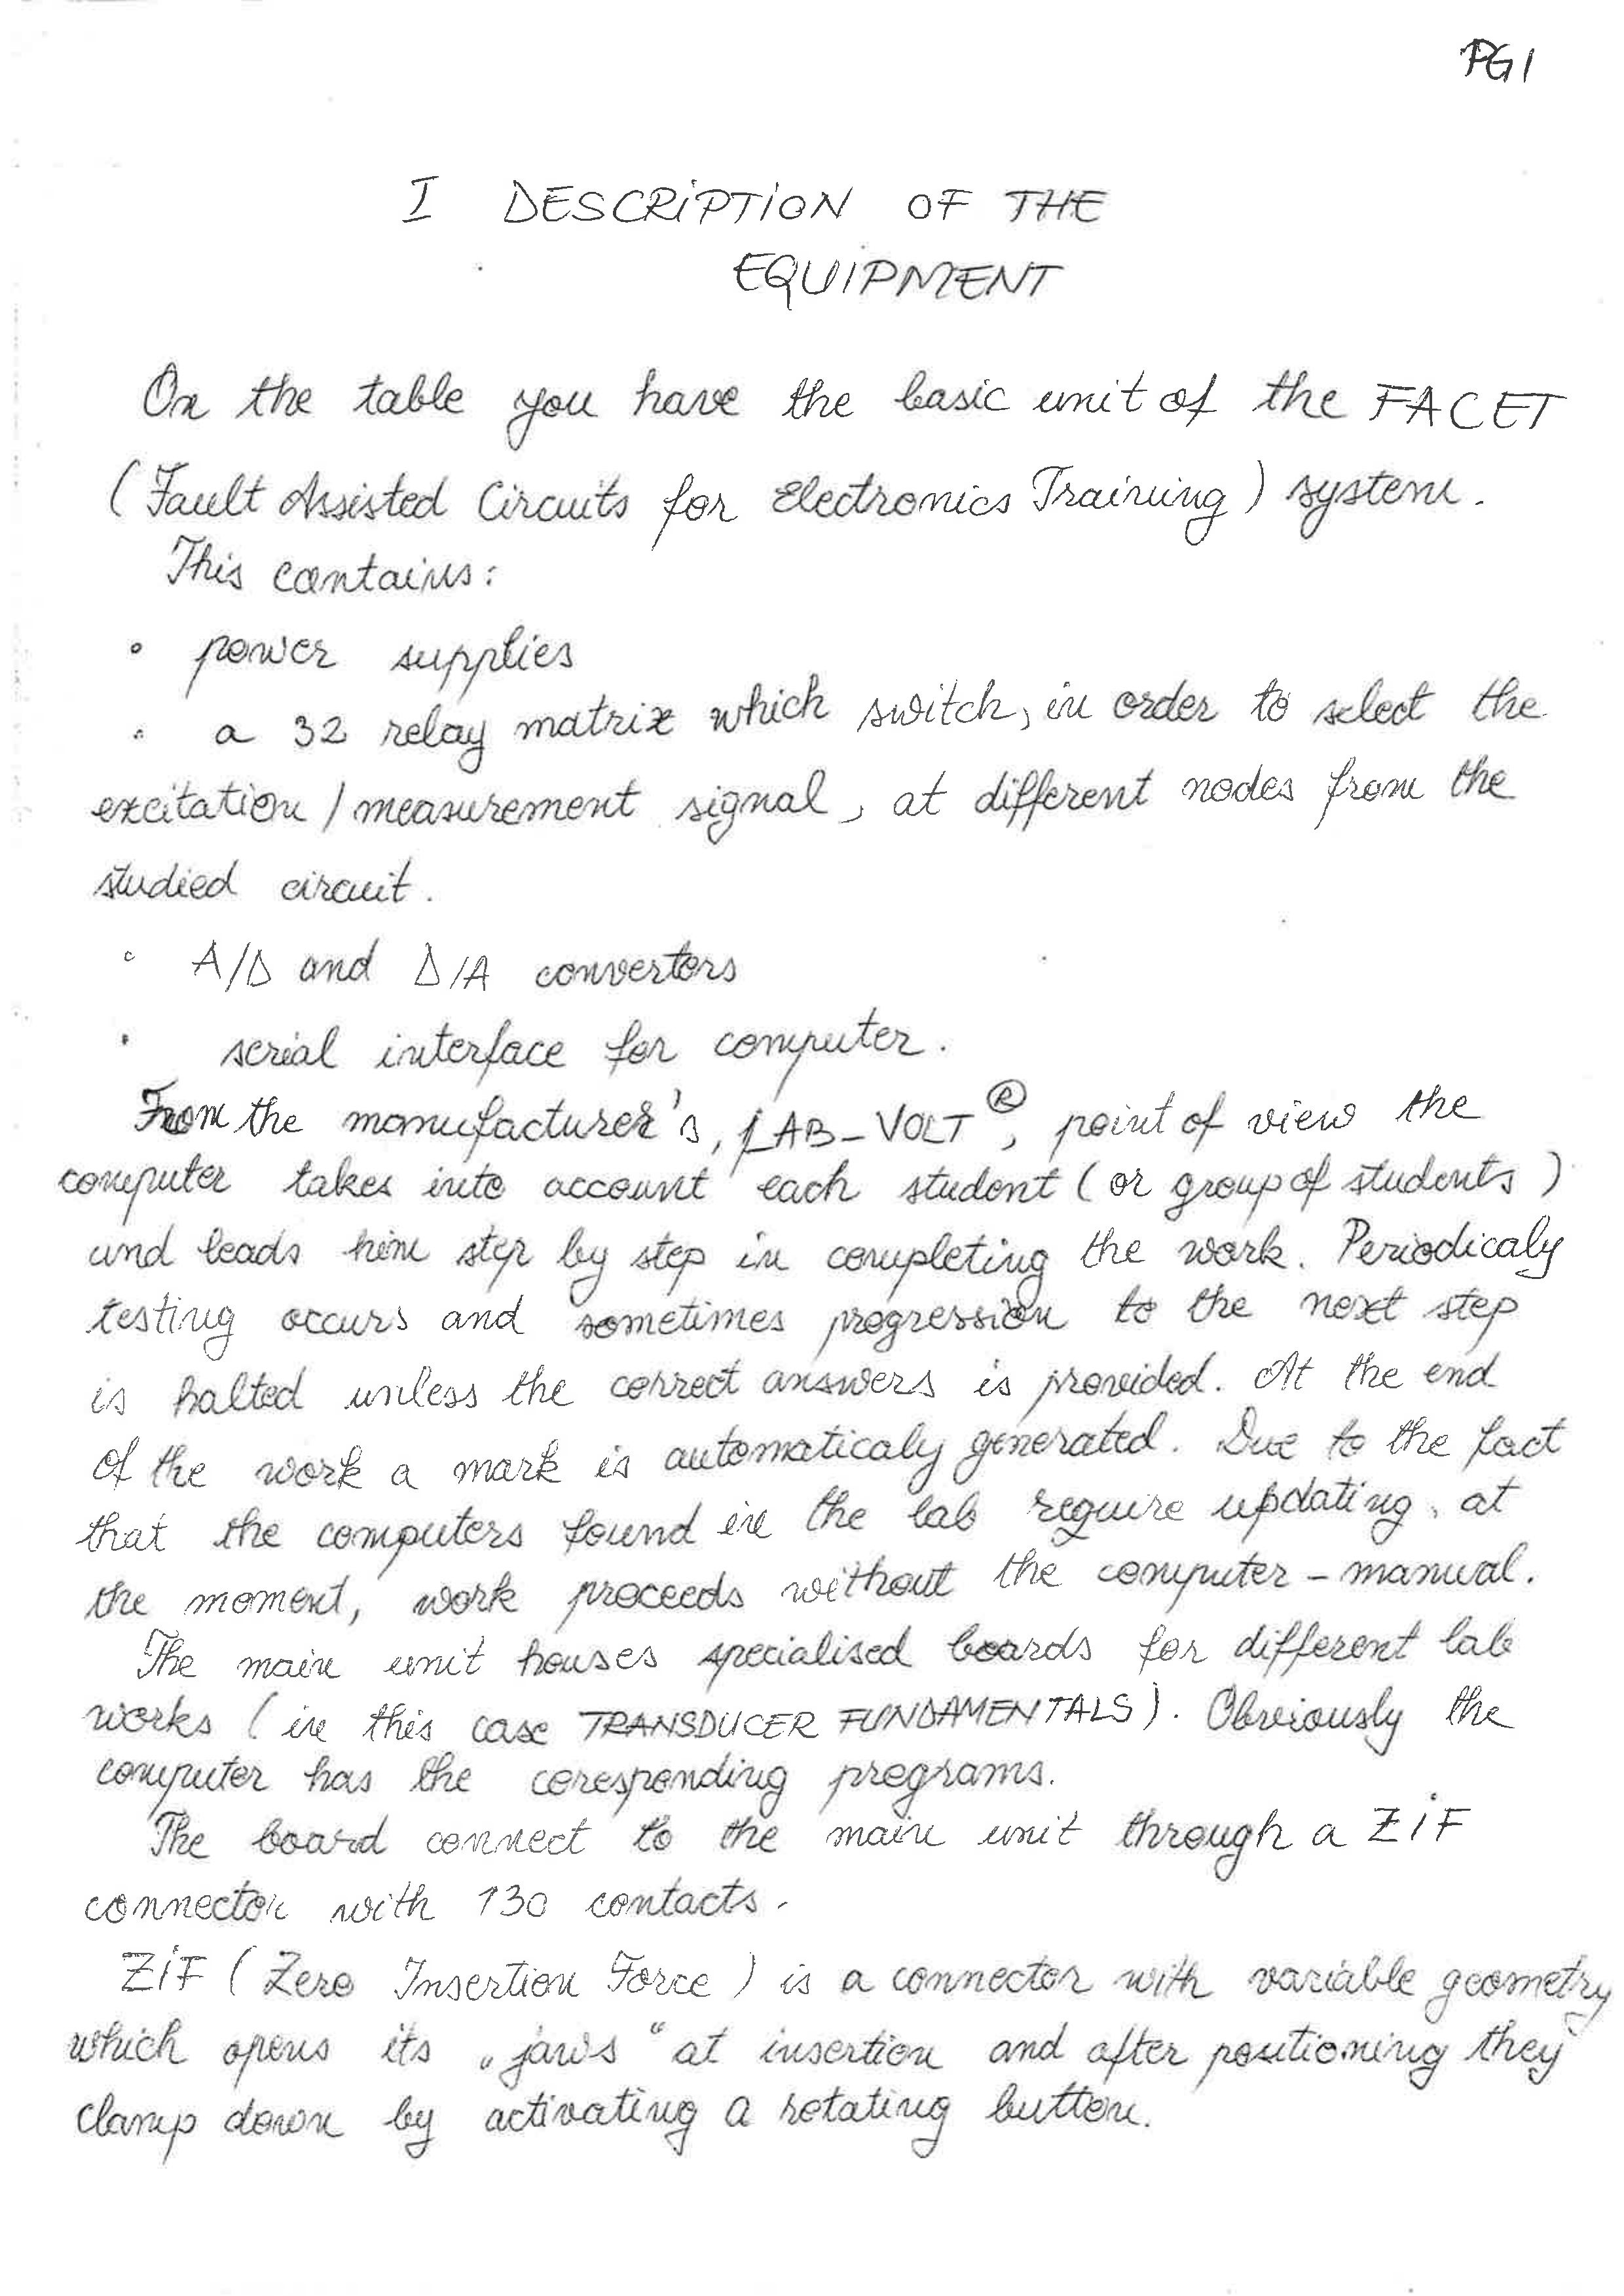 PG1
I DESCRiPTiON OF THE
EQUIPMENT
On the table you have the basic unit of the FACET
(Fault Assisted Circuits for Electronics Training) system.
This contains:
• power supplies
• a 32 relay matrix which switch, in order to select the
excitation / measurement signal, at different nodes from the
studied circuit.
• A/D and D/A convertors
• serial interface for computer.
From the manufacturer's, LAB-VOLT®, point of view the
computer takes into account each student (or group of students)
and leads him step by step in completing the work. Periodicaly
testing occurs and sometimes progression to the next step
is halted unless the correct answers is provided. At the end
of the work a mark is automaticaly generated. Due to the fact
that the computers found in the lab require updating, at
the moment, work proceeds without the computer - manual.
The main unit houses specialised boards for different lab
works (in this case TRANSDUCER FUNDAMENTALS). Obviously the
computer has the coresponding programs.
The board connect to the main unit through a ZiF
connector with 130 contacts.
ZiF (Zero Insertion Force) is a connector with variable geometry
which opens its „jaws“ at insertion and after positioning they
clamp down by activating a rotating button.